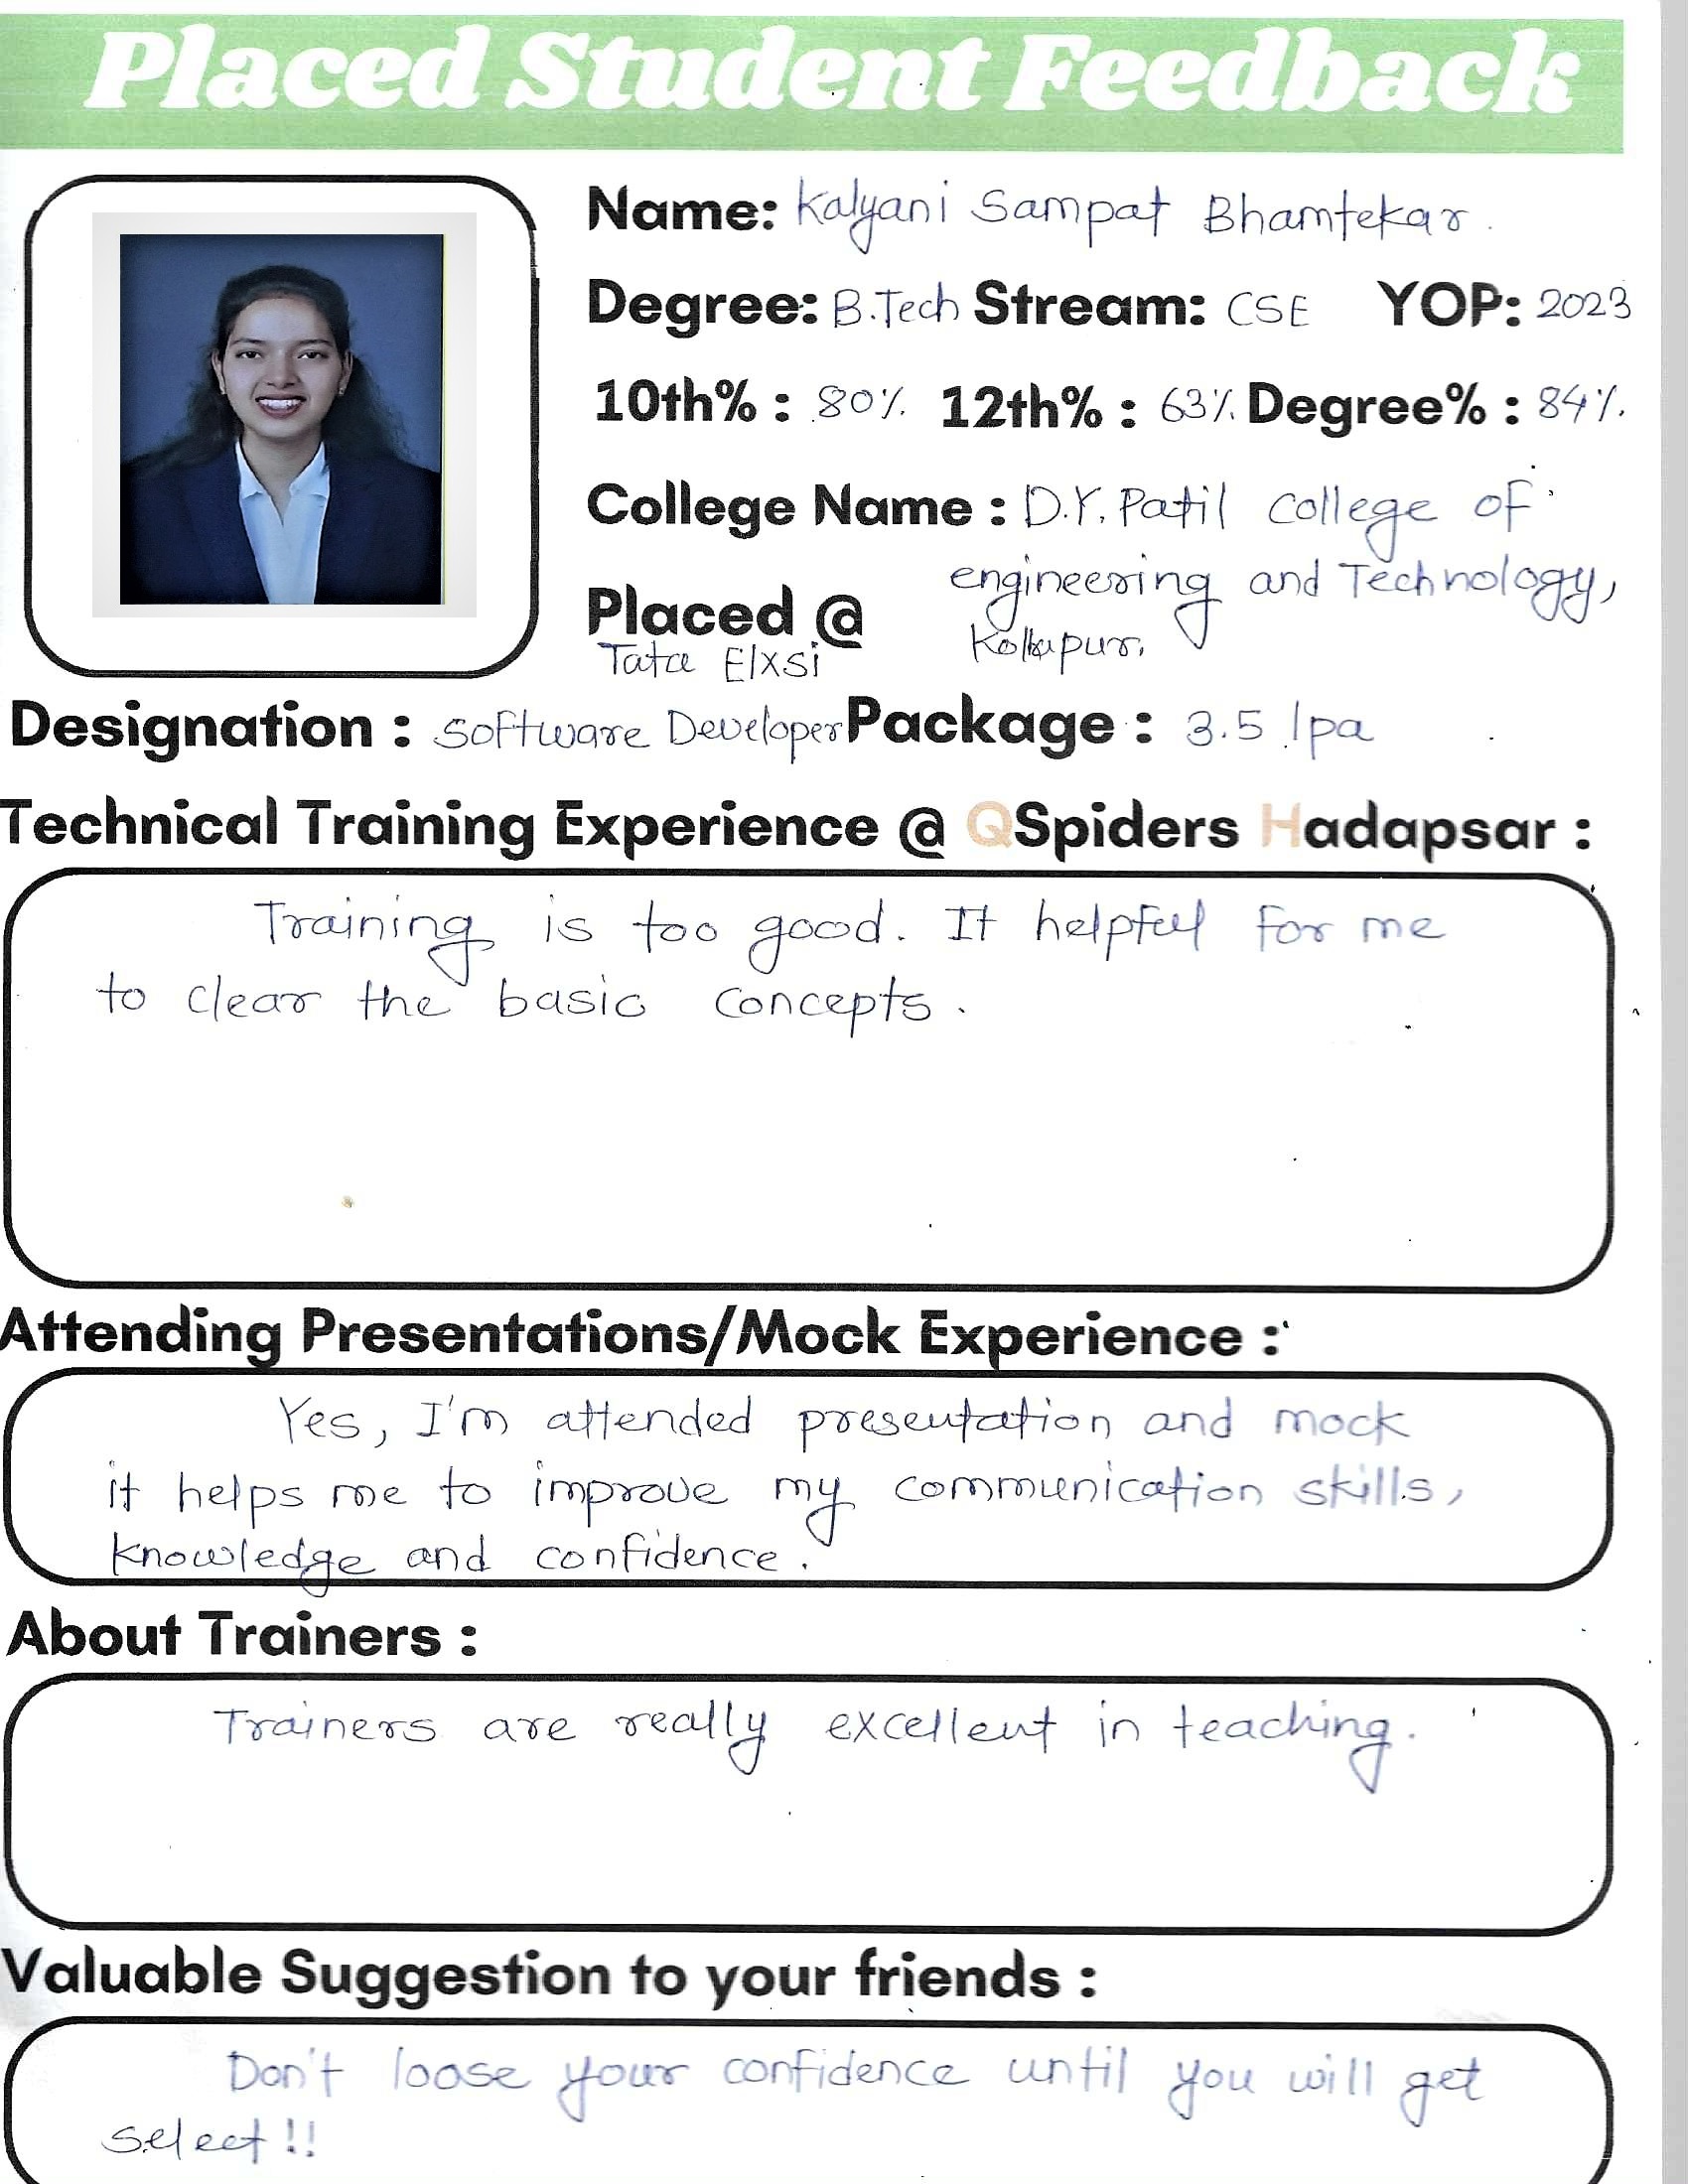 Placed Student Feedback
Name: Kalyani Sampat Bhamtekar.
Degree: B.Tech Stream: CSE YOP: 2023
10th% : 80% 12th% : 63% Degree% : 84%.
College Name : D.Y. Patil college of
engineering and Technology,
Placed @
Kolhapur.
Tata Elxsi
Designation : Software Developer Package : 3.5 lpa
Technical Training Experience @ QSpiders Hadapsar :
Training is too good. It helpful for me
to clear the basic concepts.
Attending Presentations/Mock Experience :
Yes, I'm attended presentation and mock
it helps me to improve my communication skills,
knowledge and confidence.
About Trainers :
Trainers are really excellent in teaching.
Valuable Suggestion to your friends :
Don't loose your confidence until you will get
select!!